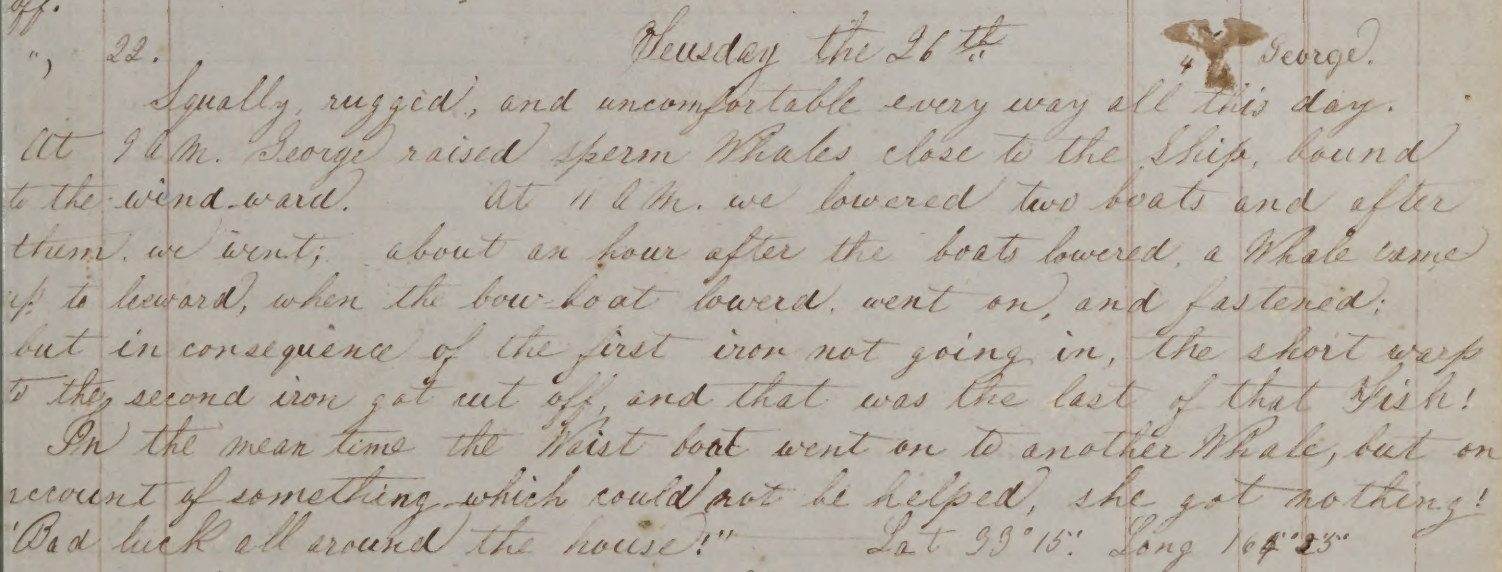 ", 22. Teusday the 26th 4 George.
Squally, rugged, and uncomfortable every way all this day.
At 9 A.M. George raised sperm Whales close to the Ship, bound
to the wind-ward. At 11 A.M. we lowered two boats and after
them. we went; about an hour after the boats lowered, a Whale came
up to leeward, when the bow-boat lowerd, went on, and fastened;
but in consequence of the first iron not going in, the short warp
to the second iron got cut off, and that was the last of that Fish!
In the mean time the Waist boat went on to another Whale, but on
account of something which could not be helped, she got nothing!
"Bad luck all around the house!" Lat 33°15' Long 164°25"